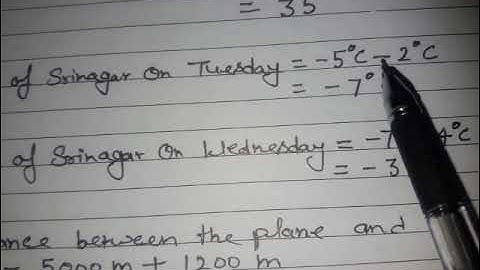 = 35
of Srinagar on Tuesday = -5°C - 2°C
= -7°
of Srinagar on Wednesday = -7 4°C
= -3
ance between the plane and
= 5000 m + 1200 m